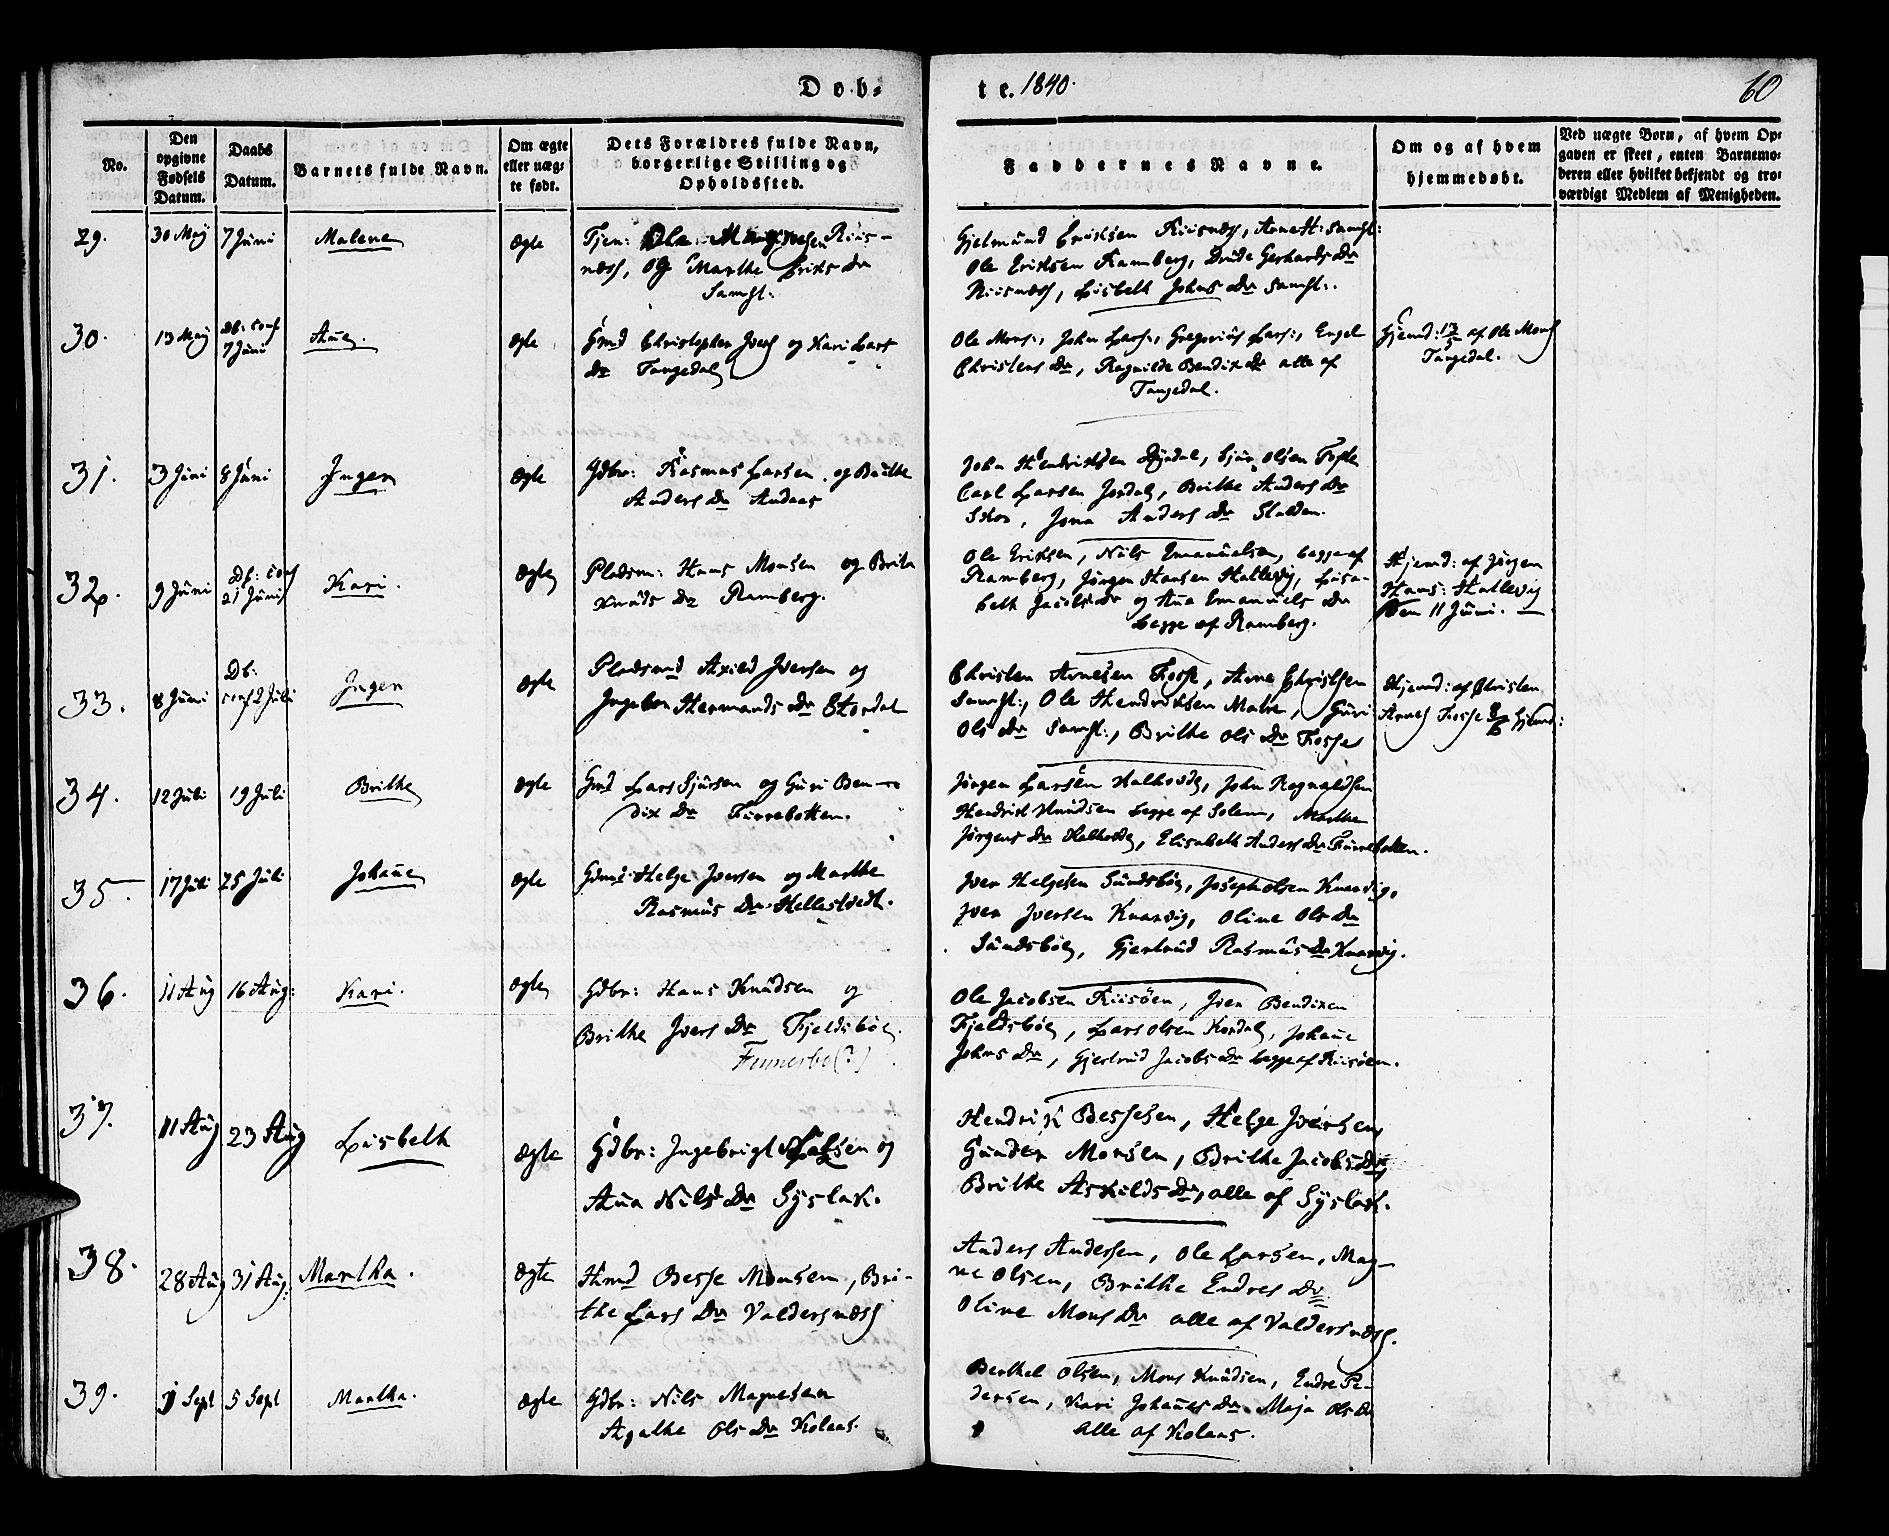 Døb-
te. 1840.
60
No.
Den opgivne Fødsels Datum.
Daabs Datum.
Barnets fulde Navn.
Om ægte eller uægte født.
Dets Forældres fulde Navn, borgerlige Stilling og Opholdssted.
Faddernes Navne.
Om og af hvem hjemmedøbt.
Ved uægte Børn, af hvem Opgaven er skeet, enten Barnemoderen eller hvilket bekjendt og troværdigt Medlem af Menigheden.
29.
30 May
7 Juni
Malene
ægte
Tjen: Ole Riis-
næss, og Marthe Eriks Dr
Samst:
Gjelmund Eriksen Riisnæss, Arne H: Samst:
Ole Eriksen Ramberg, Drude Gerhards Dr
Riisnæss, Lisbeth Johns Dr Samst:.
30.
13 May
Db: conf
7 Juni
Ane.
ægte
Gmd Christopher Ivers og Kari Lars
Dr Tangedal
Ole Mons:, John Lars:, Gregorius Lars:, Engel
Christens Dr, Ragnilde Bendix Dr alle af
Tangedal.
Hjemd: 13/5 af Ole Mons
Tangedal.
31.
3 Juni
8 Juni
Inger
ægte
Gdbr: Rasmus Larsen og Brithe
Anders Dr Andaas
John Hendriksen Dyrdal, Sjur Olsen
Carl Larsen Jordal, Brithe Anders Dr
Skor, Jona Anders Dr Stalden.
32.
9 Juni
Db: conf
21 Juni
Kari.
ægte
Pladsm: Hans Monsen og Brita
Knuds Dr Ramberg.
Ole Eriksen, Nils Emanuelsen, begge af
Ramberg, Jørgen Hansen Hallevig, Lisa-
beth Jacobs Dr og Ane Emanuels Dr
begge af Ramberg.
Hjemd: af Jørgen
Hans: Hallevig
den 11 Juni.
33.
8 Juni
Db:
conf 2 Juli
Inger
ægte
Pladsmd Axild Iversen og
Ingebor Hermands Dr Stordal
Christen Arnesen Fosse, Arne Christsen
Samst:, Ole Hendriksen Matre, Guri
Ols Dr Samst:, Brithe Ols Dr Fosse
Hjemd: af Christen
Arnes Fosse 8/6 hjemd:
34.
12 Juli
19 Juli
Brithe
ægte
Gmd Lars Sjursen og Guri Ben-
dix Dr Furrebotten.
Jørgen Larsen Halhovde, John Regnaldsen
Hendrik Knudsen begge af Solem, Marthe
Jørgens Dr Halhovde, Elisabeth Anders Dr Furrebotten.
35.
17 Juli
25 Juli
Johanne
ægte
Gdmd: Helge Iversen og Marthe
Rasmus Dr Hellestvedt.
Iver Helgesen Sundsbøe, Joseph Olsen Kvarvig,
Iver Iversen Kvarvig, Oline Ols Dr
Sundsbøe, Gjertrud Rasmus Dr Kvarvig.
36.
11 Aug
16 Aug:
Kari.
ægte
Gdbr: Hans Knudsen og
Brithe Ivers Dr Fjeldsbøe.
Finnerbo (?)
Ole Jacobsen Riisøen, Iver Bendixen
Fjeldsbøe, Lars Olsen Kordal, Johanne
Johns Dr, Gjertrud Jacobs Dr begge af Riisøen.
37.
11 Aug
23 Aug
Lisbeth
ægte
Gdbr: Ingebrigt Larsen og
Anna Nils Dr Syslak.
Hendrik Bessesen, Helge Iversen,
Gunder Monsen, Brithe Jacobs Dr,
Brithe Askilds Dr, alle af Syslak.
38.
28 Aug
31 Aug:
Martha.
ægte
Hmd Besse Monsen, Bri-
the Lars Dr Valdersnæss
Anders Andersen, Ole Larsen, Mag-
ne Olsen, Brithe Endres Dr
Oline Mons Dr alle af Valdersnæss.
39.
1 Sept
5 Sept
Martha.
ægte
Gdbr: Nils Magnesen
Agathe Ols Dr Kolaas.
Berthel Olsen, Mons Knudsen, Endre Pe-
dersen, Kari Johannes Dr, Maja Ols Dr
alle af Kolaas.